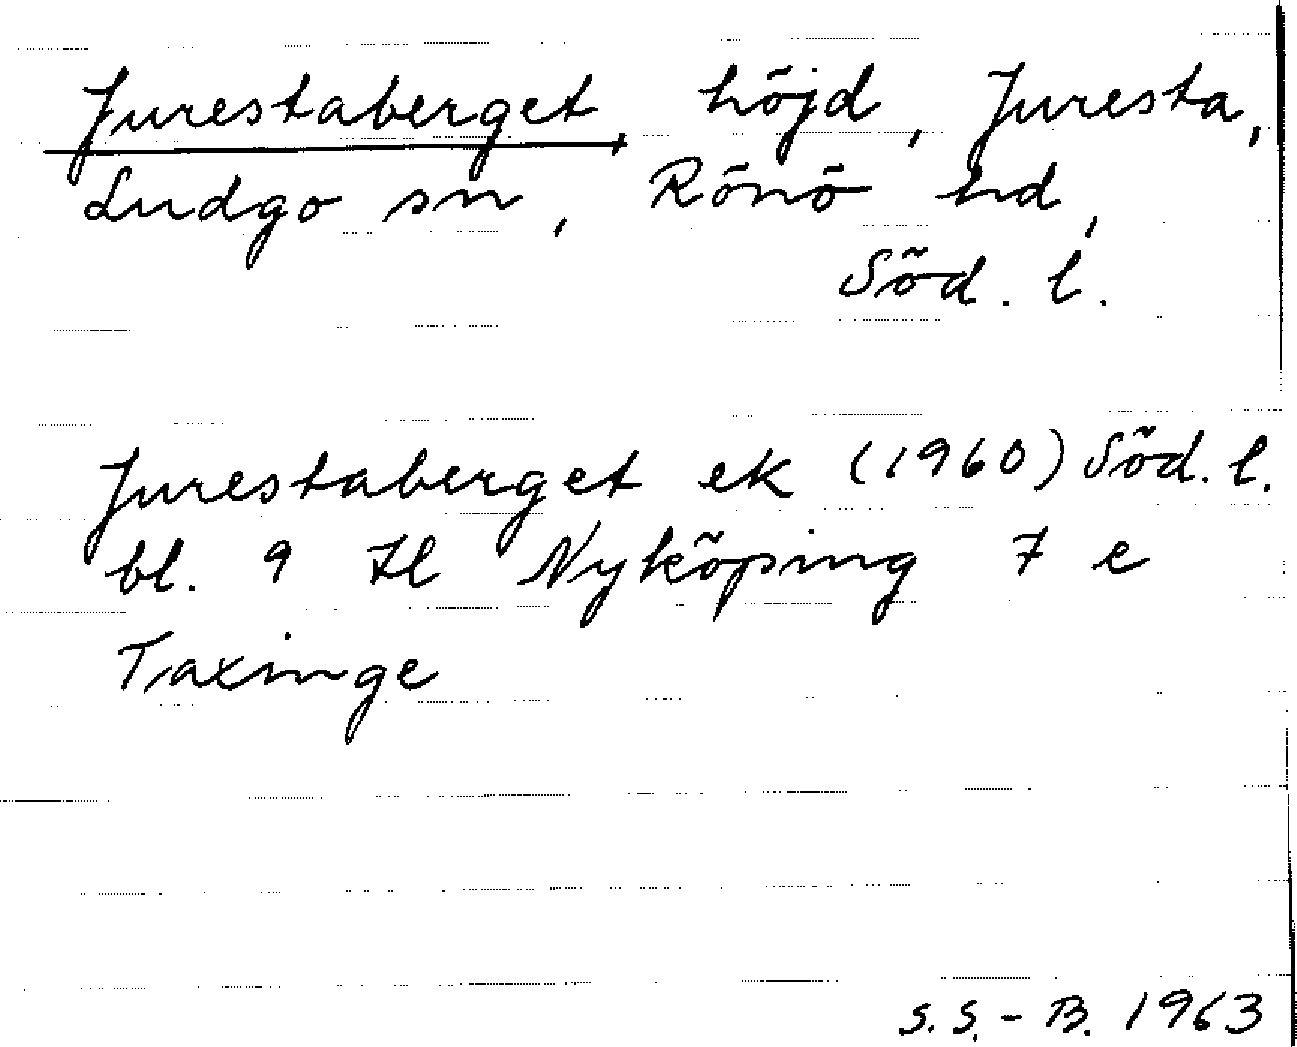 Jurestaberget, höjd, Juresta,
Ludgo sn, Rönö hd,
Söd. l.
Jurestaberget ek (1960) Söd. l.
bl. 9 H Nyköping 7 e
Taxinge
S. S. - B. 1963